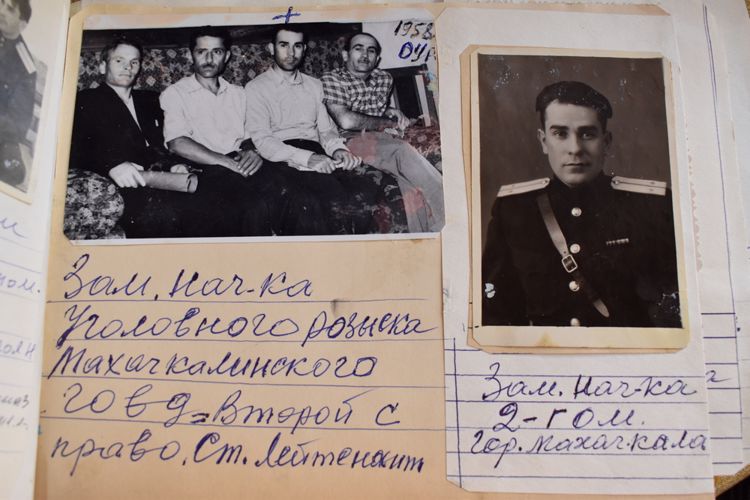 1958
ОУР
Зам. нач-ка
Уголовного розыска
Махачкалинского
ГОВД = второй с
право. Ст. Лейтенант
Зам. нач-ка
2-ГОМ.
гор. Махачкала